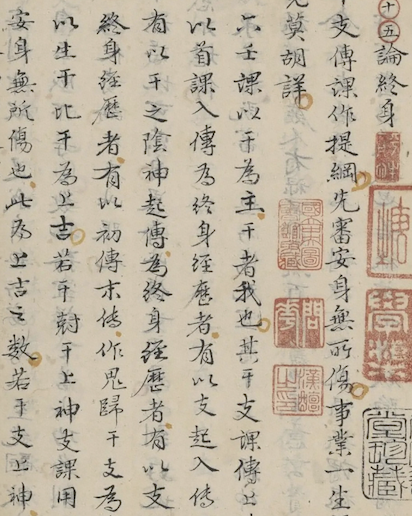 十五論終身
干支傳課作提綱先審安身無所傷事業一生
莫胡詳
六壬課以干為主干者我也其干支課傳
以首課入傳為終身經歷者有以支起入傳
有以干之陰神起傳為終身經歷者有以支
終身經歷者有以初傳末傳作鬼歸干支為
以生干比干為上吉若干尅干上神支課用
安身無所傷也此為上吉之數若干支上神
堂珍藏